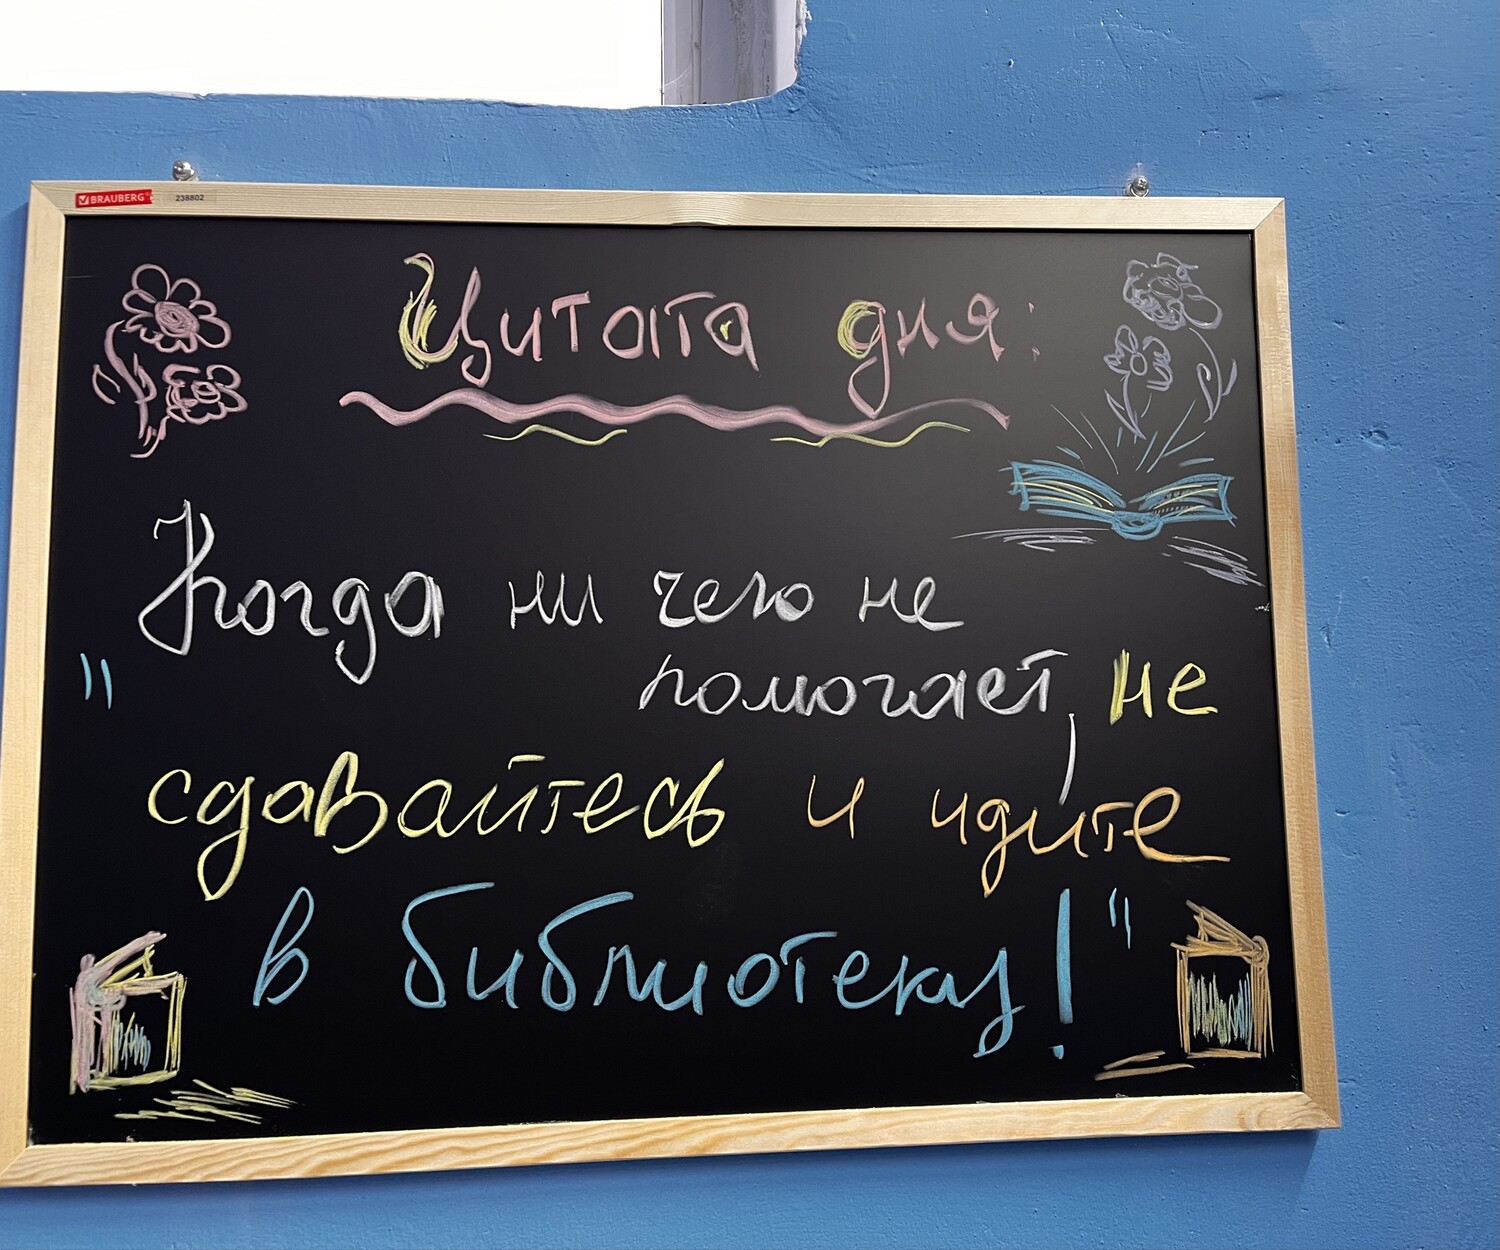 BRAUBERG® 238802
Цитата дня:
Когда ни чего не
помогает, не
"сдавайтесь и идите
в библиотеку!"